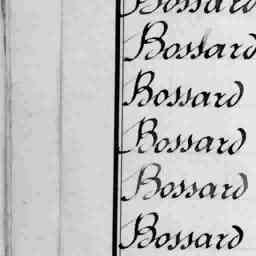 Bossard
Bossard
Bossard
Bossard
Bossard
Bossard